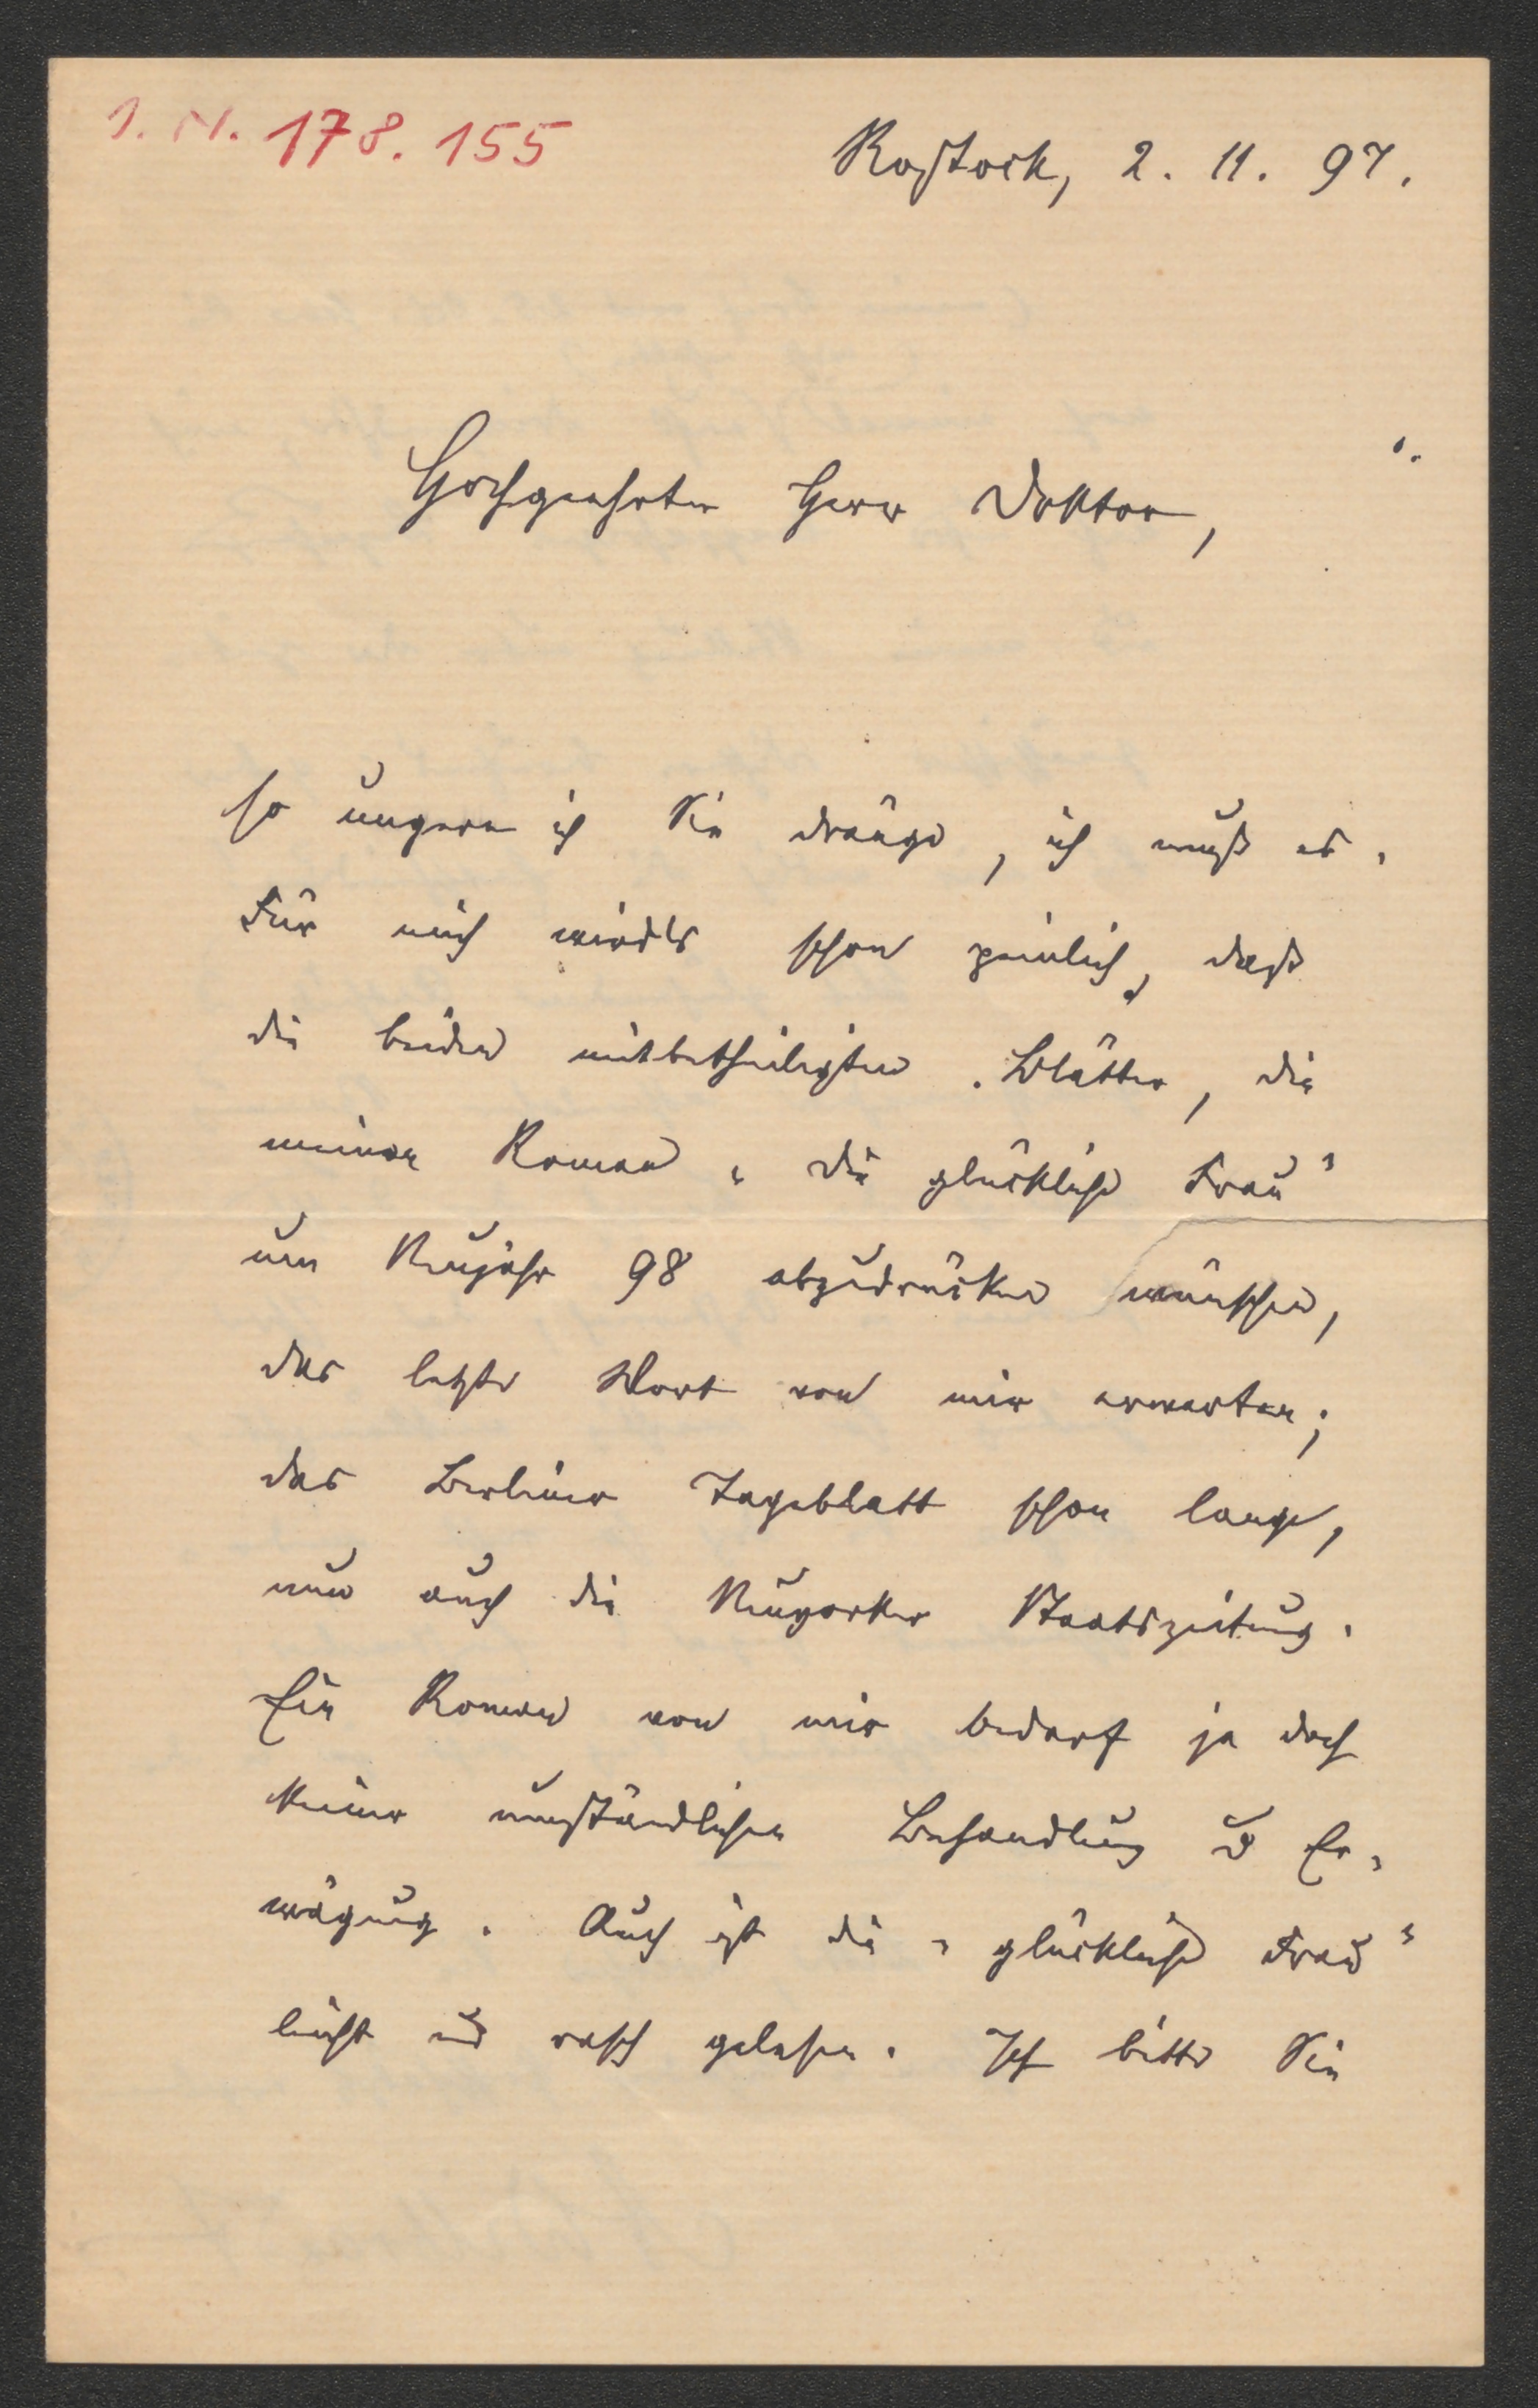 I. N. 178.155
Rostock, 2. 11. 97.
Hochgeehrter Herr Doktor,
so ungern ich Sie dränge, ich muß es.
Für mich wird's schon peinlich, daß
die beiden mitbetheiligten Blätter, die
meinen Roman „die glückliche Frau"
um Neujahr 98 abzudrucken wünschen,
das letzte Wort von mir erwarten;
das Berliner Tageblatt schon lange,
nun auch die Neuyorker Staatszeitung.
Ein Roman von mir bedarf ja doch
keiner umständlichen Behandlung u Er-
wägung. Auch ist die „glückliche Frau"
leicht und rasch gelesen. Ich bitte Sie